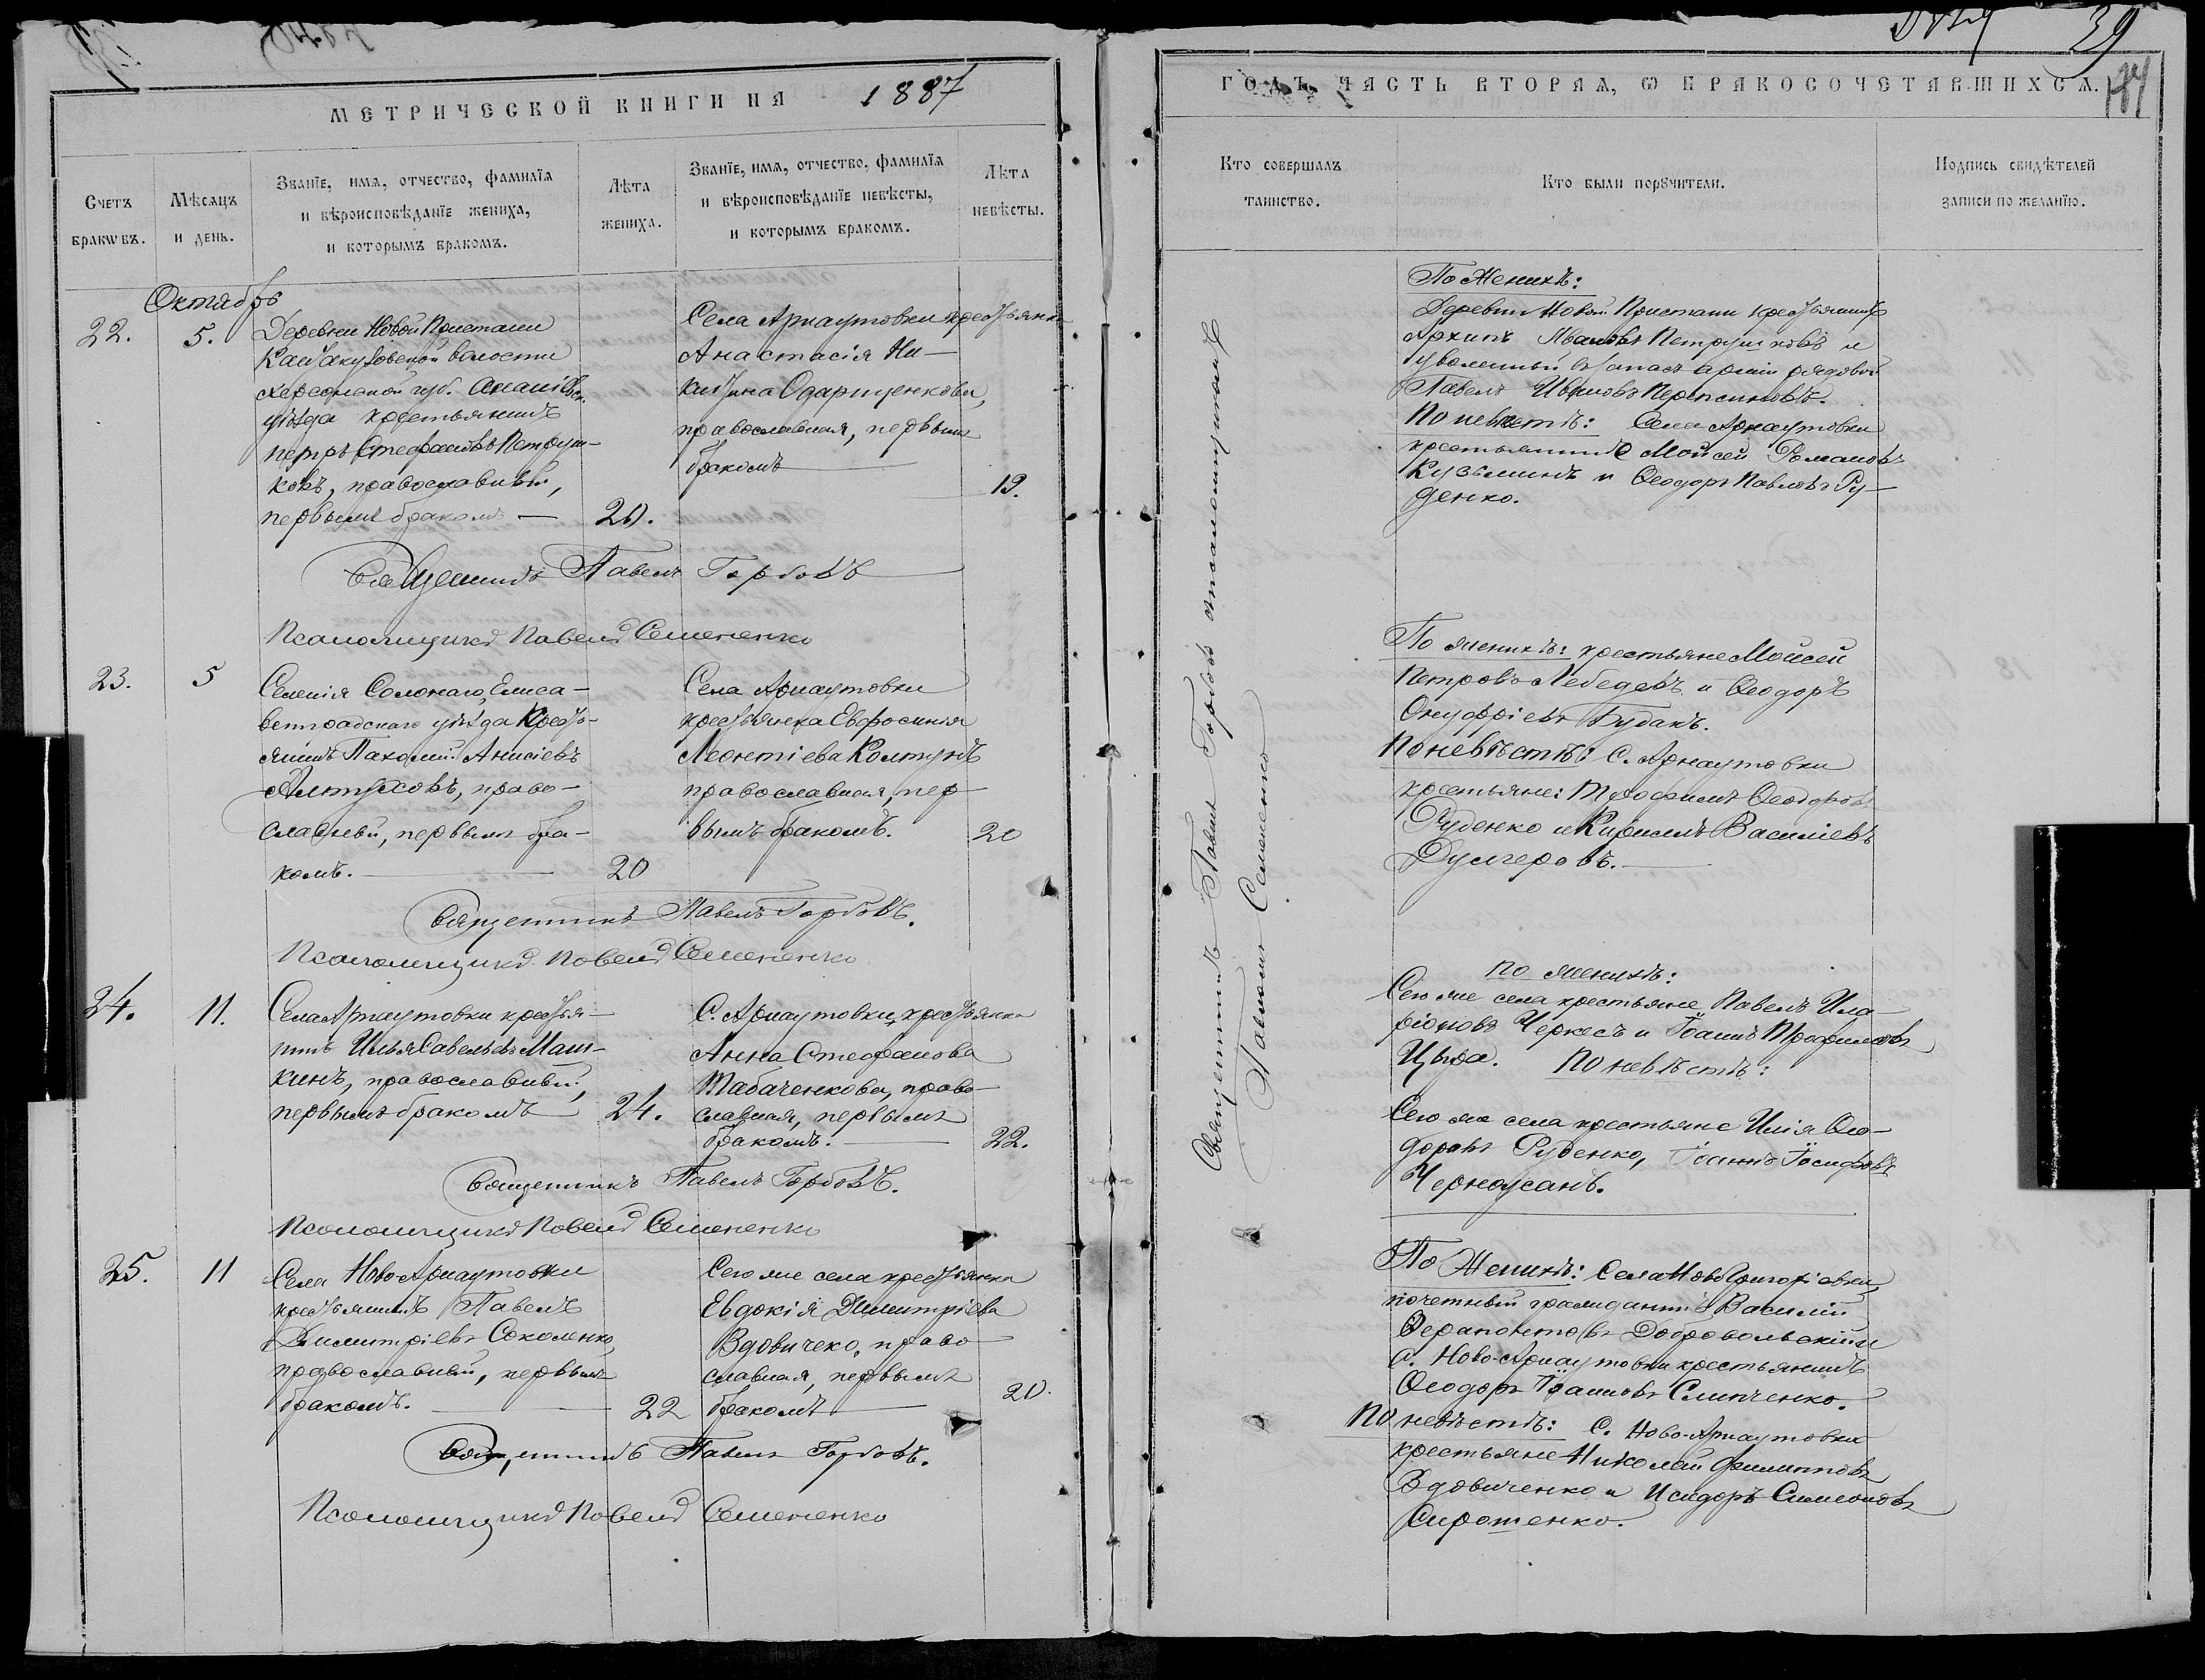 39
МЕТРИЧЕСКОЙ КНИГИ НА 1887
ГОДЪ, ЧАСТЬ ВТОРАЯ, Ѡ БРАКОСОЧЕТАВШИХСЯ.
Счетъ
браковъ.
Мѣсяцъ
и день.
Званїе, имя, отчество, фамилїя
и вѣроисповѣданїе жениха,
и которымъ бракомъ.
Лѣта
жениха.
Званїе, имя, отчество, фамилїя
и вѣроисповѣданїе невѣсты,
и которымъ бракомъ.
Лѣта
невѣсты.
Кто совершалъ
таинство.
Кто были порꙋчители.
Подпись свидѣтелей
записи по желанїю.
Октябрь
22.
5.
Деревни Новой Пристани
волости
Херсонской губ.
уѣзда крестьянинъ
Петръ Стефановъ Петруш-
ковъ, православный,
первымъ бракомъ
20.
Села Арнаутовки крестьянка
Анастасія Ни-
китина Одарщенкова,
православная, первымъ
бракомъ
19.
Священникъ Павелъ Горбовъ
Псаломщикъ Павелъ Семененко
По Женихѣ:
Деревни Новой Пристани крестьянинъ
Архипъ Ивановъ Петрушковъ и
уволенный въ запасъ арміи рядовой
Павелъ Ивановъ
По невѣстѣ: Села Арнаутовки
крестьянинъ Мойсей Романовъ
Кузьминъ и Ѳеодоръ Павловъ Ру-
денко.
Священникъ Павелъ Горбовъ псаломщикъ
Павелъ Семененко
23.
5
Селенія Солонаго, Елиса-
ветградскаго уѣзда кресть-
янинъ Пахомій Анисіевъ
Алтуховъ, право-
славный, первымъ бра-
комъ.
20
Села Арнаутовки
крестьянка Евфросинія
Леонтіева Колтунъ
православная, пер-
вымъ бракомъ.
20
Священникъ Павелъ Горбовъ.
Псаломщикъ Павелъ Семененко
По женихѣ: крестьяне Мойсей
Петровъ Лебедевъ и Ѳеодоръ
Онуфріевъ Будакъ.
По невѣстѣ: С. Арнаутовки
крестьяне: Трофимъ Ѳеодоровъ
Руденко и Кириллъ Василіевъ
Дулгеровъ.
24.
11.
Села Арнаутовки крестья-
нинъ Илья Савельевъ Маш-
кинъ, православный,
первымъ бракомъ
24.
С. Арнаутовки, крестьянка
Анна Стефанова
Табаченкова, право-
славная, первымъ
бракомъ.
22.
Священникъ Павелъ Горбовъ.
Псаломщикъ Павелъ Семененко
По женихѣ:
Сего же села крестьяне Павелъ Ила-
ріоновъ Черкесъ и Іоаннъ Трофимовъ
Цыра. По невѣстѣ:
Сего же села крестьяне Илія Ѳео-
доровъ Руденко, Іоаннъ Іосифовъ
25.
11
Села Ново-Арнаутовки
крестьянинъ Павелъ
Димитріевъ Соколенко,
православный, первымъ
бракомъ.
22
Сего же села крестьянка
Евдокія Димитріева
Вдовичеко, право
славная, первымъ
бракомъ
20.
Священникъ Павелъ Горбовъ.
Псаломщикъ Павелъ Семененко
По Женихѣ: Села Ново Григоріевки,
почетный гражданинъ Василій
Ѳерапонтовъ Добровольскій и
С. Ново-Арнаутовки крестьянинъ
Ѳеодоръ Іоанновъ Слипченко.
По невѣстѣ: С. Ново-Арнаутовки
крестьяне Николай Филипповъ
Вдовиченко и Исидоръ Симеоновъ
Сиротенко.